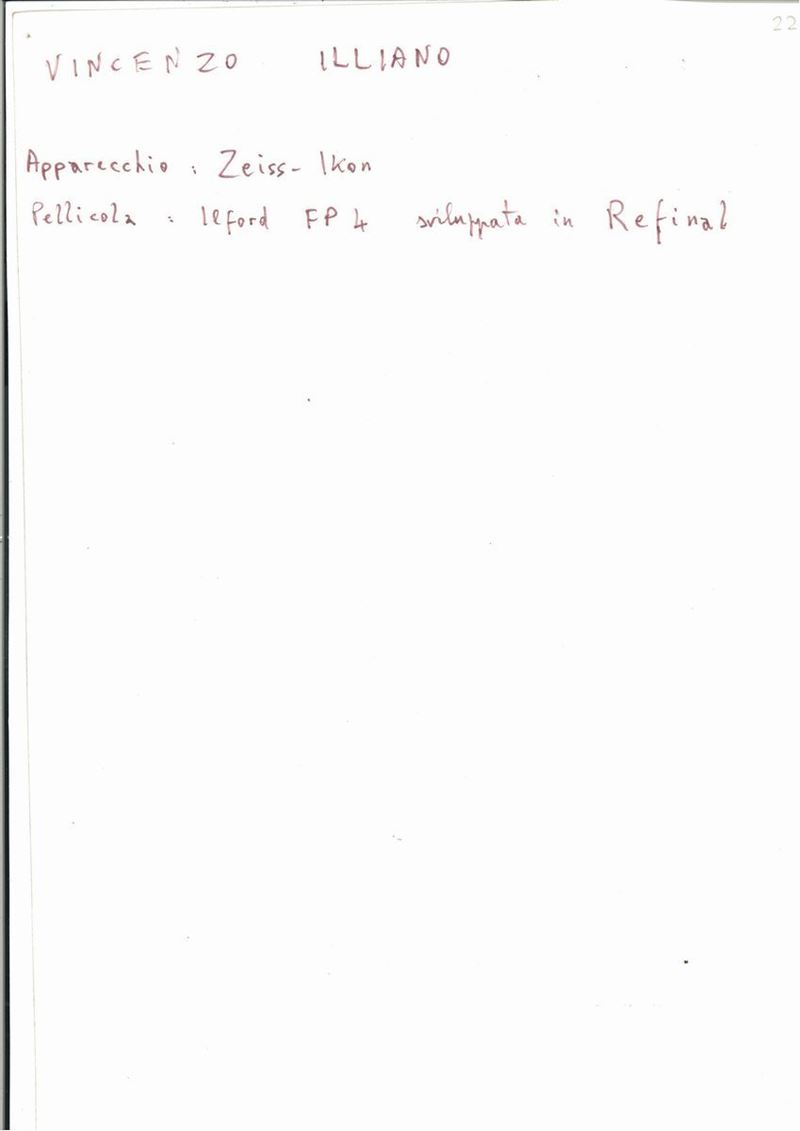 22
VINCENZO ILLIANO
Apparecchio : Zeiss-Ikon
Pellicola : Ilford FP4 sviluppata in Refinal